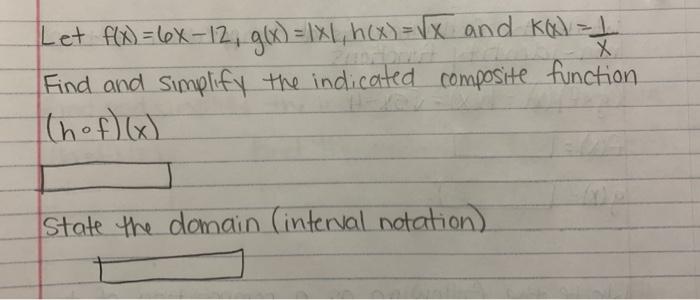 Let f(x)=6x-12, g(x)=|x|, h(x)=√x and K(x)=1/x
Find and simplify the indicated composite function
(h∘f)(x)
State the domain (interval notation)